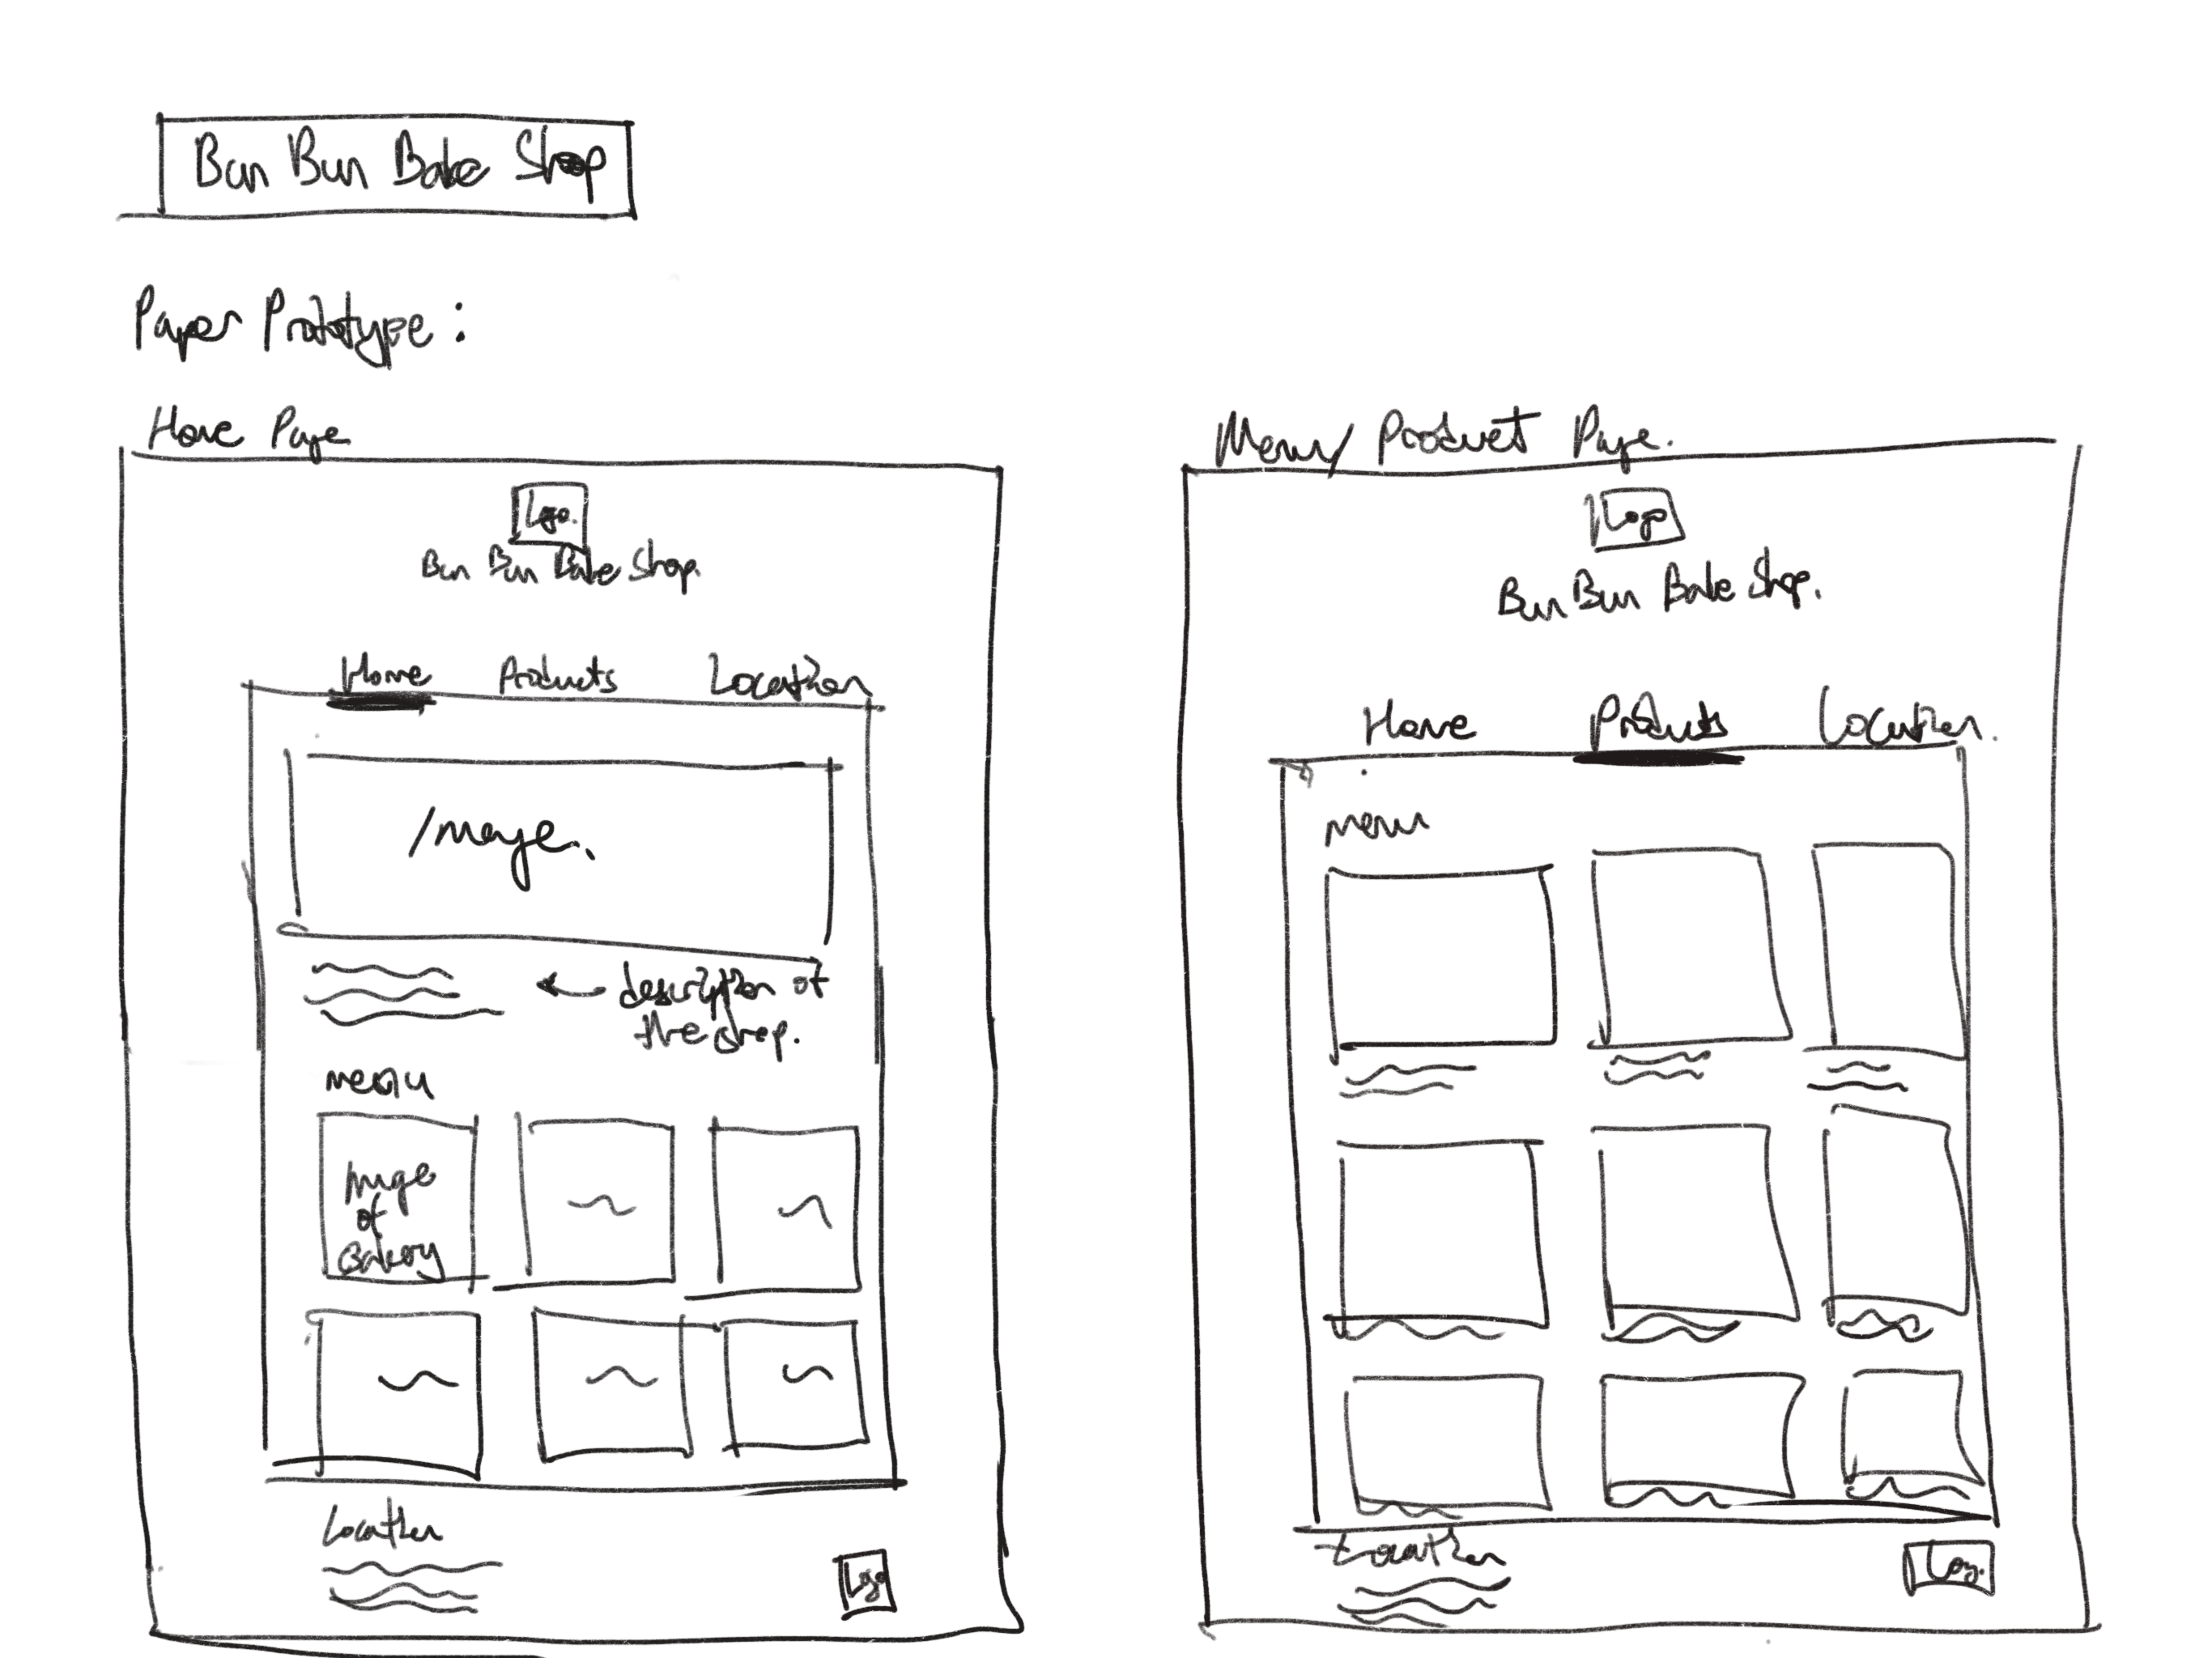 Bun Bun Bake Shop
Paper Prototype :
Home Page
Logo.
Bun Bun Bake Shop.
Home Products Location
Image.
← description of
the shop.
menu
Image
of
Bakery
Location
Logo
Menu/ Product Page.
Logo
Bun Bun Bake Shop.
Home Products Location.
menu
Location
Logo.